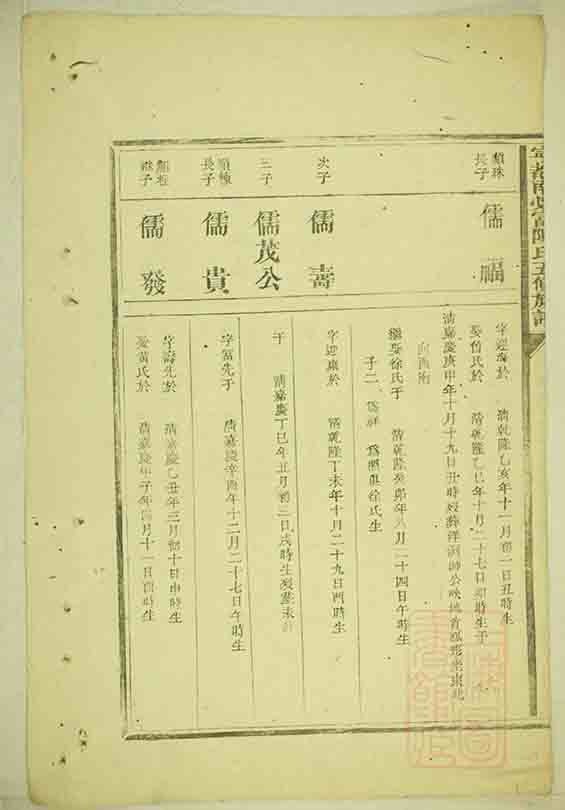 顯珠
長子
儒福
字迎海於 清乾隆乙亥年十一月初二日丑時生
娶曾氏於 清乾隆乙巳年十月二十七日卯時生于
清嘉慶庚申年十月十九日丑時歿葬洋 坐東北
向西南
繼娶徐氏于 清乾隆癸卯年八月二十四日午時生
子二 徐氏生
次子
儒壽
字迎康於 清乾隆丁未年十月二十九日酉時生
三子
儒茂公
于 清嘉慶丁巳年五月初三日戌時生歿葬未
顯棟
長子
儒貴
字富先于 清嘉慶辛酉年十二月二十七日午時生
顯
繼子
儒發
字海先於 清嘉慶乙丑年三月初十日申時生
娶黃氏於 清嘉慶甲子年四月十一日酉時生